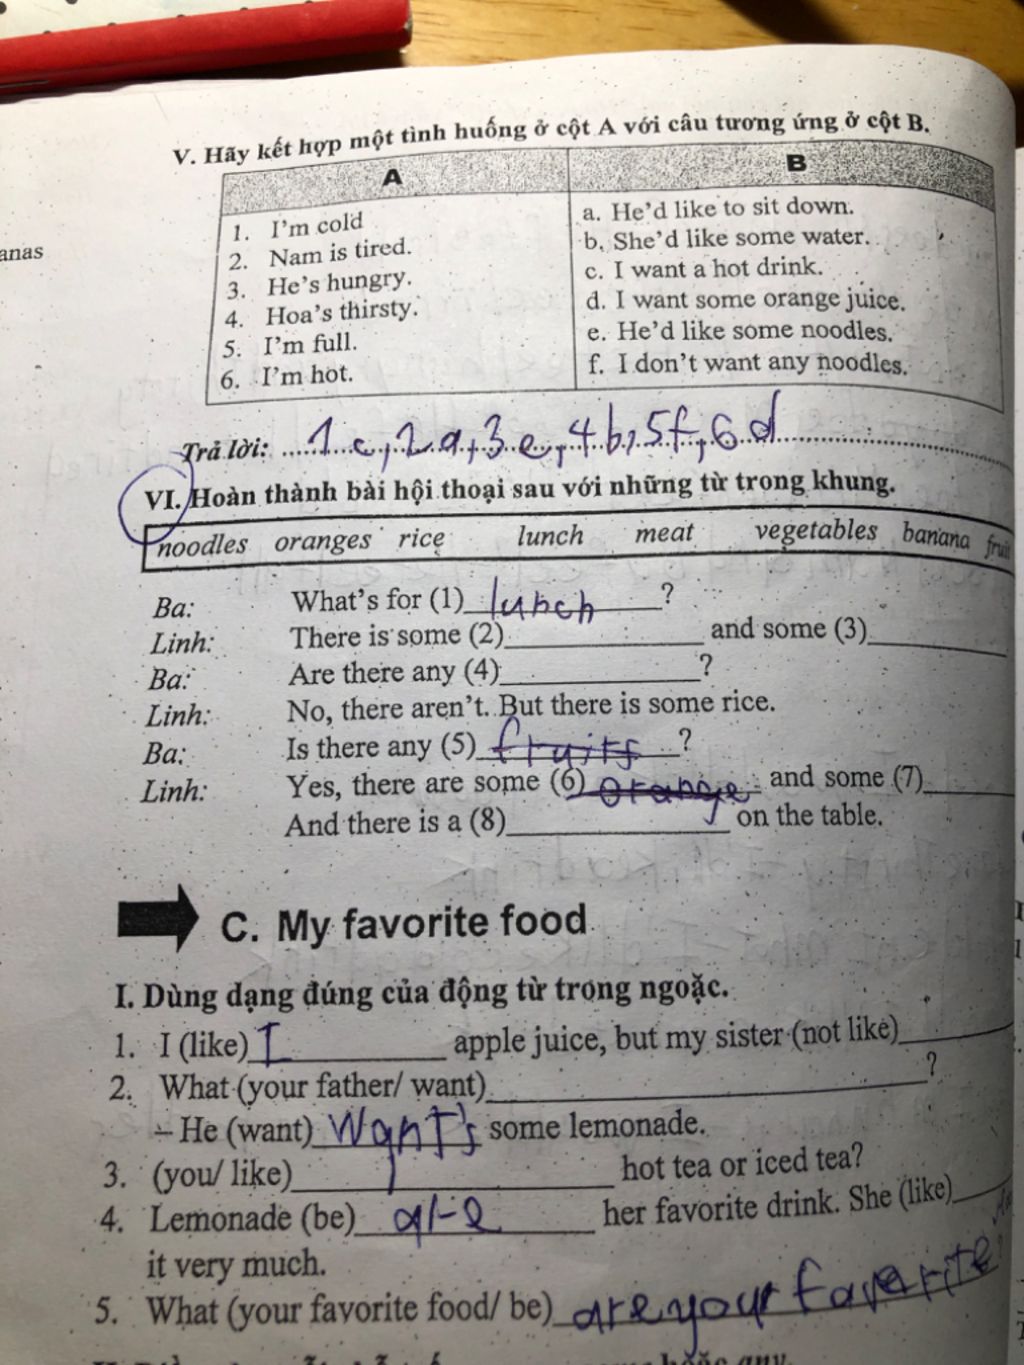 anas
V. Hãy kết hợp một tình huống ở cột A với câu tương ứng ở cột B.
A
B
1. I'm cold
2. Nam is tired.
3. He's hungry.
4. Hoa's thirsty.
5. I'm full.
6. I'm hot.
a. He'd like to sit down.
b. She'd like some water.
c. I want a hot drink.
d. I want some orange juice.
e. He'd like some noodles.
f. I don't want any noodles.
Trả lời: 1c, 2a, 3e, 4b, 5f, 6d
VI. Hoàn thành bài hội thoại sau với những từ trong khung.
noodles oranges rice lunch meat vegetables banana fruit
Ba: What's for (1) lunch ?
Linh: There is some (2) and some (3)
Ba: Are there any (4) ?
Linh: No, there aren't. But there is some rice.
Ba: Is there any (5) fruits ?
Linh: Yes, there are some (6) orange and some (7)
And there is a (8) on the table.
C. My favorite food
I. Dùng dạng đúng của động từ trong ngoặc.
1. I (like) I apple juice, but my sister (not like)
2. What (your father/ want) ?
– He (want) want's some lemonade.
3. (you/ like) hot tea or iced tea?
4. Lemonade (be) are her favorite drink. She (like)
it very much.
5. What (your favorite food/ be) are your favorite ?